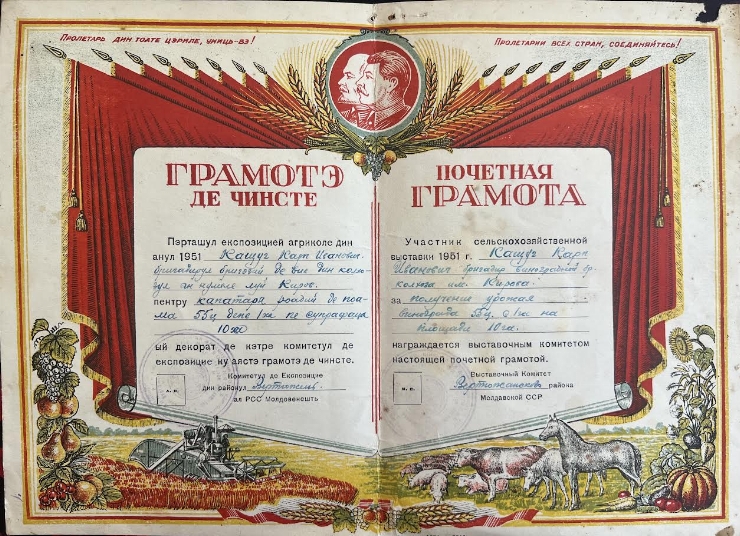 Пролетарь дин тоате цэриле, униць-вэ!
ГРАМОТЭ
ДЕ ЧИНСТЕ
Пэрташул експозицией агриколе дин
анул 1951 Кащук Карп Иванович
бригадирул бригэзий де вие дин колхо-
зул ын нумеле луй Киров.
пентру капатаря роадий де поа-
ма 55ц депе 1га пе супрафаца
10га
ый декорат де кэтре комитетул де
експозицие ку аястэ грамотэ де чинсте.
Комитетул де Експозицие
дин районул
ал РСС Молдовенешть
Пролетарии всех стран, соединяйтесь!
ПОЧЕТНАЯ
ГРАМОТА
Участник сельскохозяйственной
выставки 1951 г. Кащук Карп
Иванович бригадир виноградной бр.
колхоза им. Кирова
за получение урожая
винограда 55ц с 1га на
площади 10га.
награждается выставочным комитетом
настоящей почетной грамотой.
Выставочный Комитет
района
Молдавской ССР